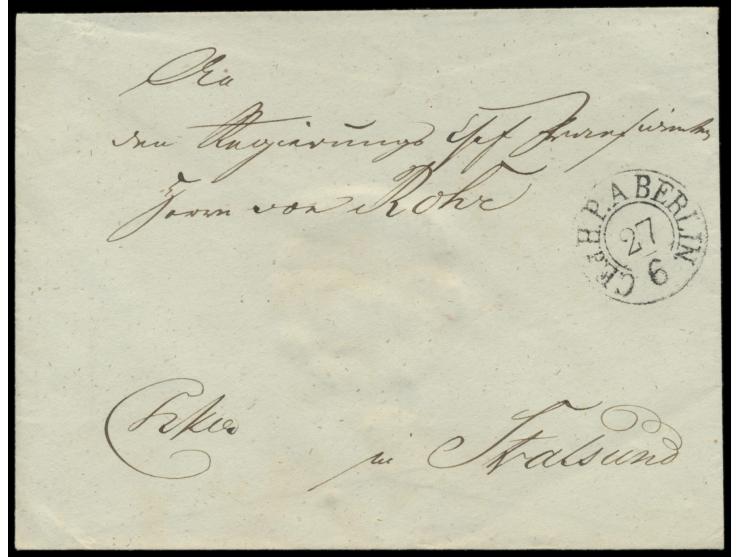 An
den Regierungs Chef Praesidenten
Herrn von Rohr
CE.d.H.P.A BERLIN
27
6
in Stralsund